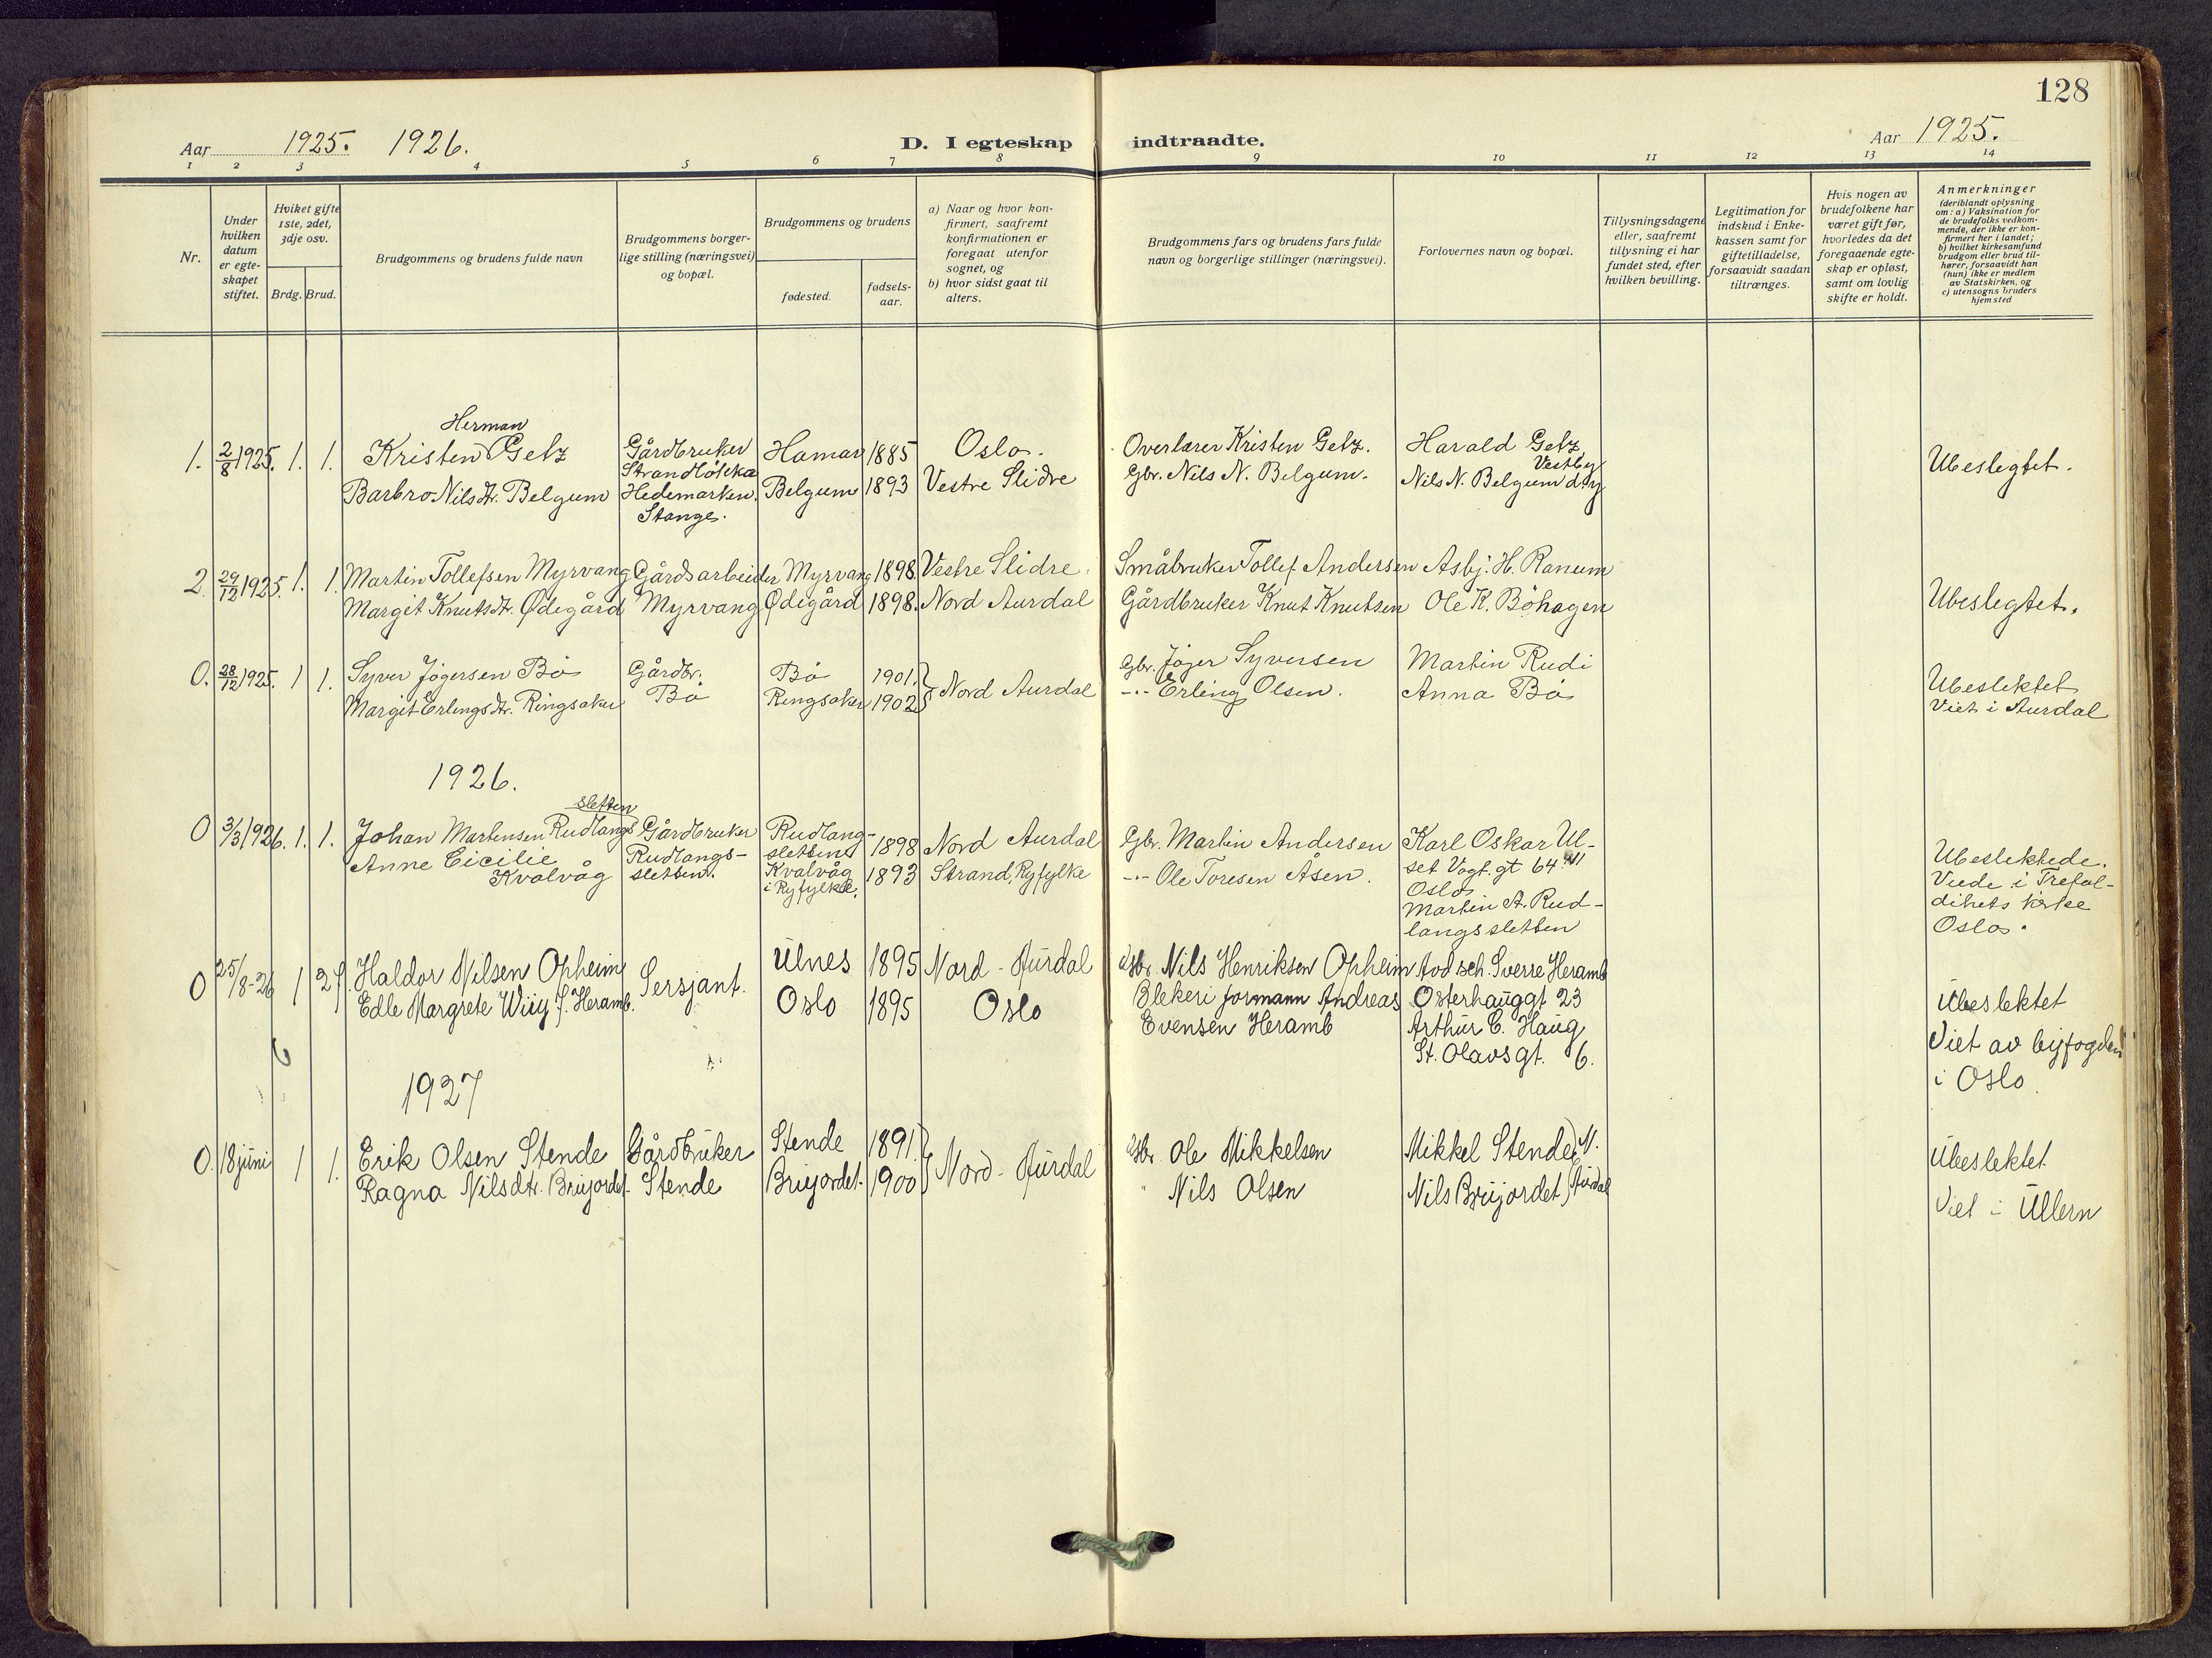 128
Aar 1925. 1926. D. I egteskap indtraadte. Aar 1925.
1 2 3 4 5 6 7 8 9 10 11 12 13 14
Nr.
Under hvilken datum er egteskapet stiftet.
Hviket gifte 1ste, 2det, 3dje osv.
Brdg. Brud.
Brudgommens og brudens fulde navn
Brudgommens borgerlige stilling (næringsvei) og bopæl.
Brudgommens og brudens
fødested.
fødselsaar.
a) Naar og hvor konfirmert, saafremt konfirmationen er foregaat utenfor sognet, og
b) hvor sidst gaat til alters.
Brudgommens fars og brudens fars fulde navn og borgerlige stillinger (næringsvei).
Forlovernes navn og bopæl.
Tillysningsdagene eller, saafremt tillysning ei har fundet sted, efter hvilken bevilling.
Legitimation for indskud i Enkekassen samt for giftetilladelse, forsaavidt saadan tiltrænges.
Hvis nogen av brudefolkene har været gift før, hvorledes da det foregaaende egteskap er opløst, samt om lovlig skifte er holdt.
Anmerkninger
(deriblandt oplysning om: a) Vaksination for de brudefolks vedkommende, der ikke er konfirmert her i landet; b) hvilket kirkesamfund brudgom eller brud tilhører, forsaavidt han (hun) ikke er medlem av Statskirken, og c) utensogns bruders hjemsted
Herman
1. 2/8 1925. 1. 1. Kristen Getz Gårdbruker Hamar 1885 Oslo. Overlærer Kristen Getz. Harald Getz
Barbro Nilsdtr. Belgum Hedemarken. Belgum 1893 Vestre Slidre Gbr. Nils N. Belgum. Nils N. Belgum Ubeslegtet.
Stange.
2. 29/12 1925. 1. 1. Martin Tollefsen Myrvang Gårdsarbeider Myrvang 1898. Vestre Slidre. Småbruker Tollef Andersen Asbj. H. Ranum
Margit Knutsdtr. Ødegård Myrvang Ødegård 1898. Nord Aurdal Gårdbruker Knut Knutsen Ole K. Böhagen Ubeslegtet.
0. 28/12 1925. 1 1. Syver Jögersen Bö Gårdbr. Bö 1901. Gbr. Jöger Syversen Martin Rudi
Margit Erlingsdtr. Ringsaker Bö Ringsaker 1902 } Nord Aurdal -"- Erling Olsen. Anna Bö Ubeslektet
Viet i Aurdal
1926.
sletten
0 3/3 1926. 1. 1. Johan Martensen Rudlangs Gårdbruker Rudlang- 1898 Nord Aurdal Gbr. Martin Andersen Karl Oskar Ul-
Anne Cicilie Rudlangs- sletten set Vogt. gt 64 Ubeslektede.
Kvalvåg sletten. Kvalvåg 1893 Strand, Ryfylke -"- Ole Toresen Åsen. Oslo Viede i Trefol-
i Ryfylke. Martin A. Rud- dihets kirke
langssletten Oslo.
0 25/8-26 1 2 Haldor Nilsen Opheim Sersjant. Ulnes 1895 Nord-Aurdal Gbr. Nils Henriksen Opheim Avd sch. Sverre Heramb
Edle Margrete Wiig f. Heramb. Oslo 1895 Oslo Blekeri formann Andreas Osterhauggt 23 Ubeslektet
Evensen Heramb Arthur C. Haug Viet av byfogden
St. Olavsgt. 6. i Oslo.
1927
0. 18 juni 1 1. Erik Olsen Stende Gårdbruker Stende 1891. Gbr. Ole Mikkelsen Mikkel Stende } N. Ubeslektet
Ragna Nilsdtr. Brujordet Stende Brujordet. 1900 } Nord-Aurdal " Nils Olsen Nils Brujordet } Aurdal
Viet i Ullern